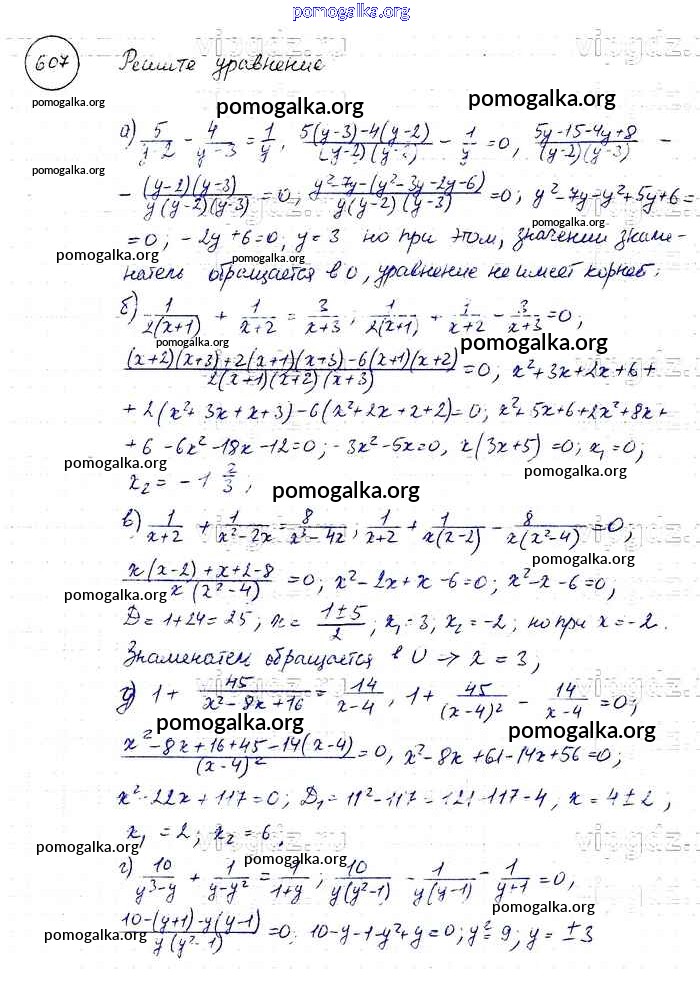 pomogalka.org
607 Решите уравнение
pomogalka.org
pomogalka.org pomogalka.org
а) 5/(y-2) - 4/(y-3) = 1/y, (5(y-3)-4(y-2))/((y-2)(y-3)) - 1/y = 0, (5y-15-4y+8)/((y-2)(y-3)) -
pomogalka.org
- ((y-2)(y-3))/(y(y-2)(y-3)) = 0; (y²-7y-(y²-3y-2y-6))/(y(y-2)(y-3)) = 0; y²-7y-y²+5y+6=
pomogalka.org
=0; -2y+6=0, y=3 но при этом, значении знаме-
pomogalka.org pomogalka.org
натель обращается в 0, уравнение не имеет корней.
б) 1/(2(x+1)) + 1/(x+2) = 3/(x+3); 1/(2(x+1)) + 1/(x+2) - 3/(x+3) = 0;
pomogalka.org pomogalka.org
((x+2)(x+3)+2(x+1)(x+3)-6(x+1)(x+2))/(2(x+1)(x+2)(x+3)) = 0; x²+3x+2x+6+
+2(x²+3x+x+3)-6(x²+2x+x+2)=0; x²+5x+6+2x²+8x+
+6-6x²-18x-12=0; -3x²-5x=0, x(3x+5)=0; x₁=0;
pomogalka.org pomogalka.org
x₂ = -1 2/3;
pomogalka.org
в) 1/(x+2) + 1/(x²-2x) = 8/(x³-4x); 1/(x+2) + 1/(x(x-2)) - 8/(x(x²-4)) = 0,
pomogalka.org
(x(x-2)+x+2-8)/(x(x²-4)) = 0; x²-2x+x-6=0; x²-x-6=0,
pomogalka.org
D=1+24=25; x= (1±5)/2; x₁=3; x₂=-2; но при x=-2.
Знаменатель обращается в 0 → x=3;
1 + 45/(x²-8x+16) = 14/(x-4), 1 + 45/(x-4)² - 14/(x-4) = 0;
pomogalka.org pomogalka.org
(x²-8x+16+45-14(x-4))/(x-4)² = 0, x²-8x+61-14x+56=0;
x²-22x+117=0; D₁=11²-117=121-117=4, x=4±2;
x₁=2; x₂=6.
pomogalka.org pomogalka.org
pomogalka.org
г) 10/(y³-y) + 1/(y-y²) = 1/(1+y); 10/(y(y²-1)) - 1/(y(y-1)) - 1/(y+1) = 0,
pomogalka.org
(10-(y+1)-y(y-1))/(y(y²-1)) = 0. 10-y-1-y²+y=0; y²=9; y=±3
pomogalka.org